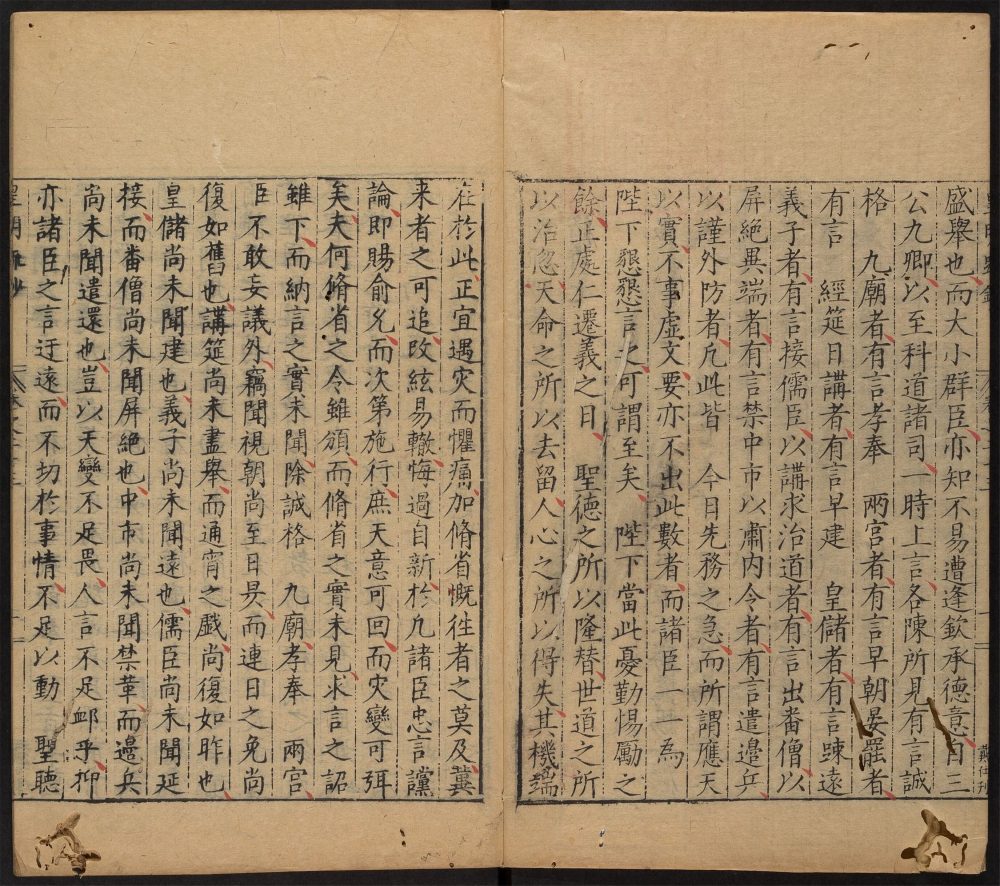 盛舉也而大小群臣亦知不易遭逢欽承德意自三
公九卿以至科道諸司一時上言各陳所見有言誠
格　九廟者有言孝奉　兩宮者有言早朝晏罷者
有言　經筵日講者有言早建　皇儲者有言踈遠
義子者有言接儒臣以講求治道者有言出番僧以
屏絶異端者有言禁中市以肅内令者有言遣邊兵
以謹外防者凡此皆　今日先務之急而所謂應天
以實不事虚文要亦不出此數者而諸臣一一爲
陛下懇懇言之可謂至矣　陛下當此憂勤惕勵之
餘正處仁遷義之日　聖德之所以隆替世道之所
以治忽天命之所以去留人心之所以得失其機端
在於此正宜遇灾而懼痛加脩省慨徃者之莫及冀
来者之可追改絃易轍悔過自新於凡諸臣忠言讜
論即賜俞允而次第施行庶天意可回而灾變可弭
矣夫何脩省之令雖頒而脩省之實未見求言之詔
雖下而納言之實未聞除誠格　九廟孝奉　兩宮
臣不敢妄議外竊聞視朝尚至日昃而連日之免尚
復如舊也講筵尚未盡舉而通宵之戲尚復如昨也
皇儲尚未聞建也義子尚未聞遠也儒臣尚未聞延
接而番僧尚未聞屏絶也中市尚未聞禁革而邊兵
尚未聞遣還也豈以天變不足畏人言不足邮乎抑
亦諸臣之言迂遠而不切於事情不足以動　聖聴